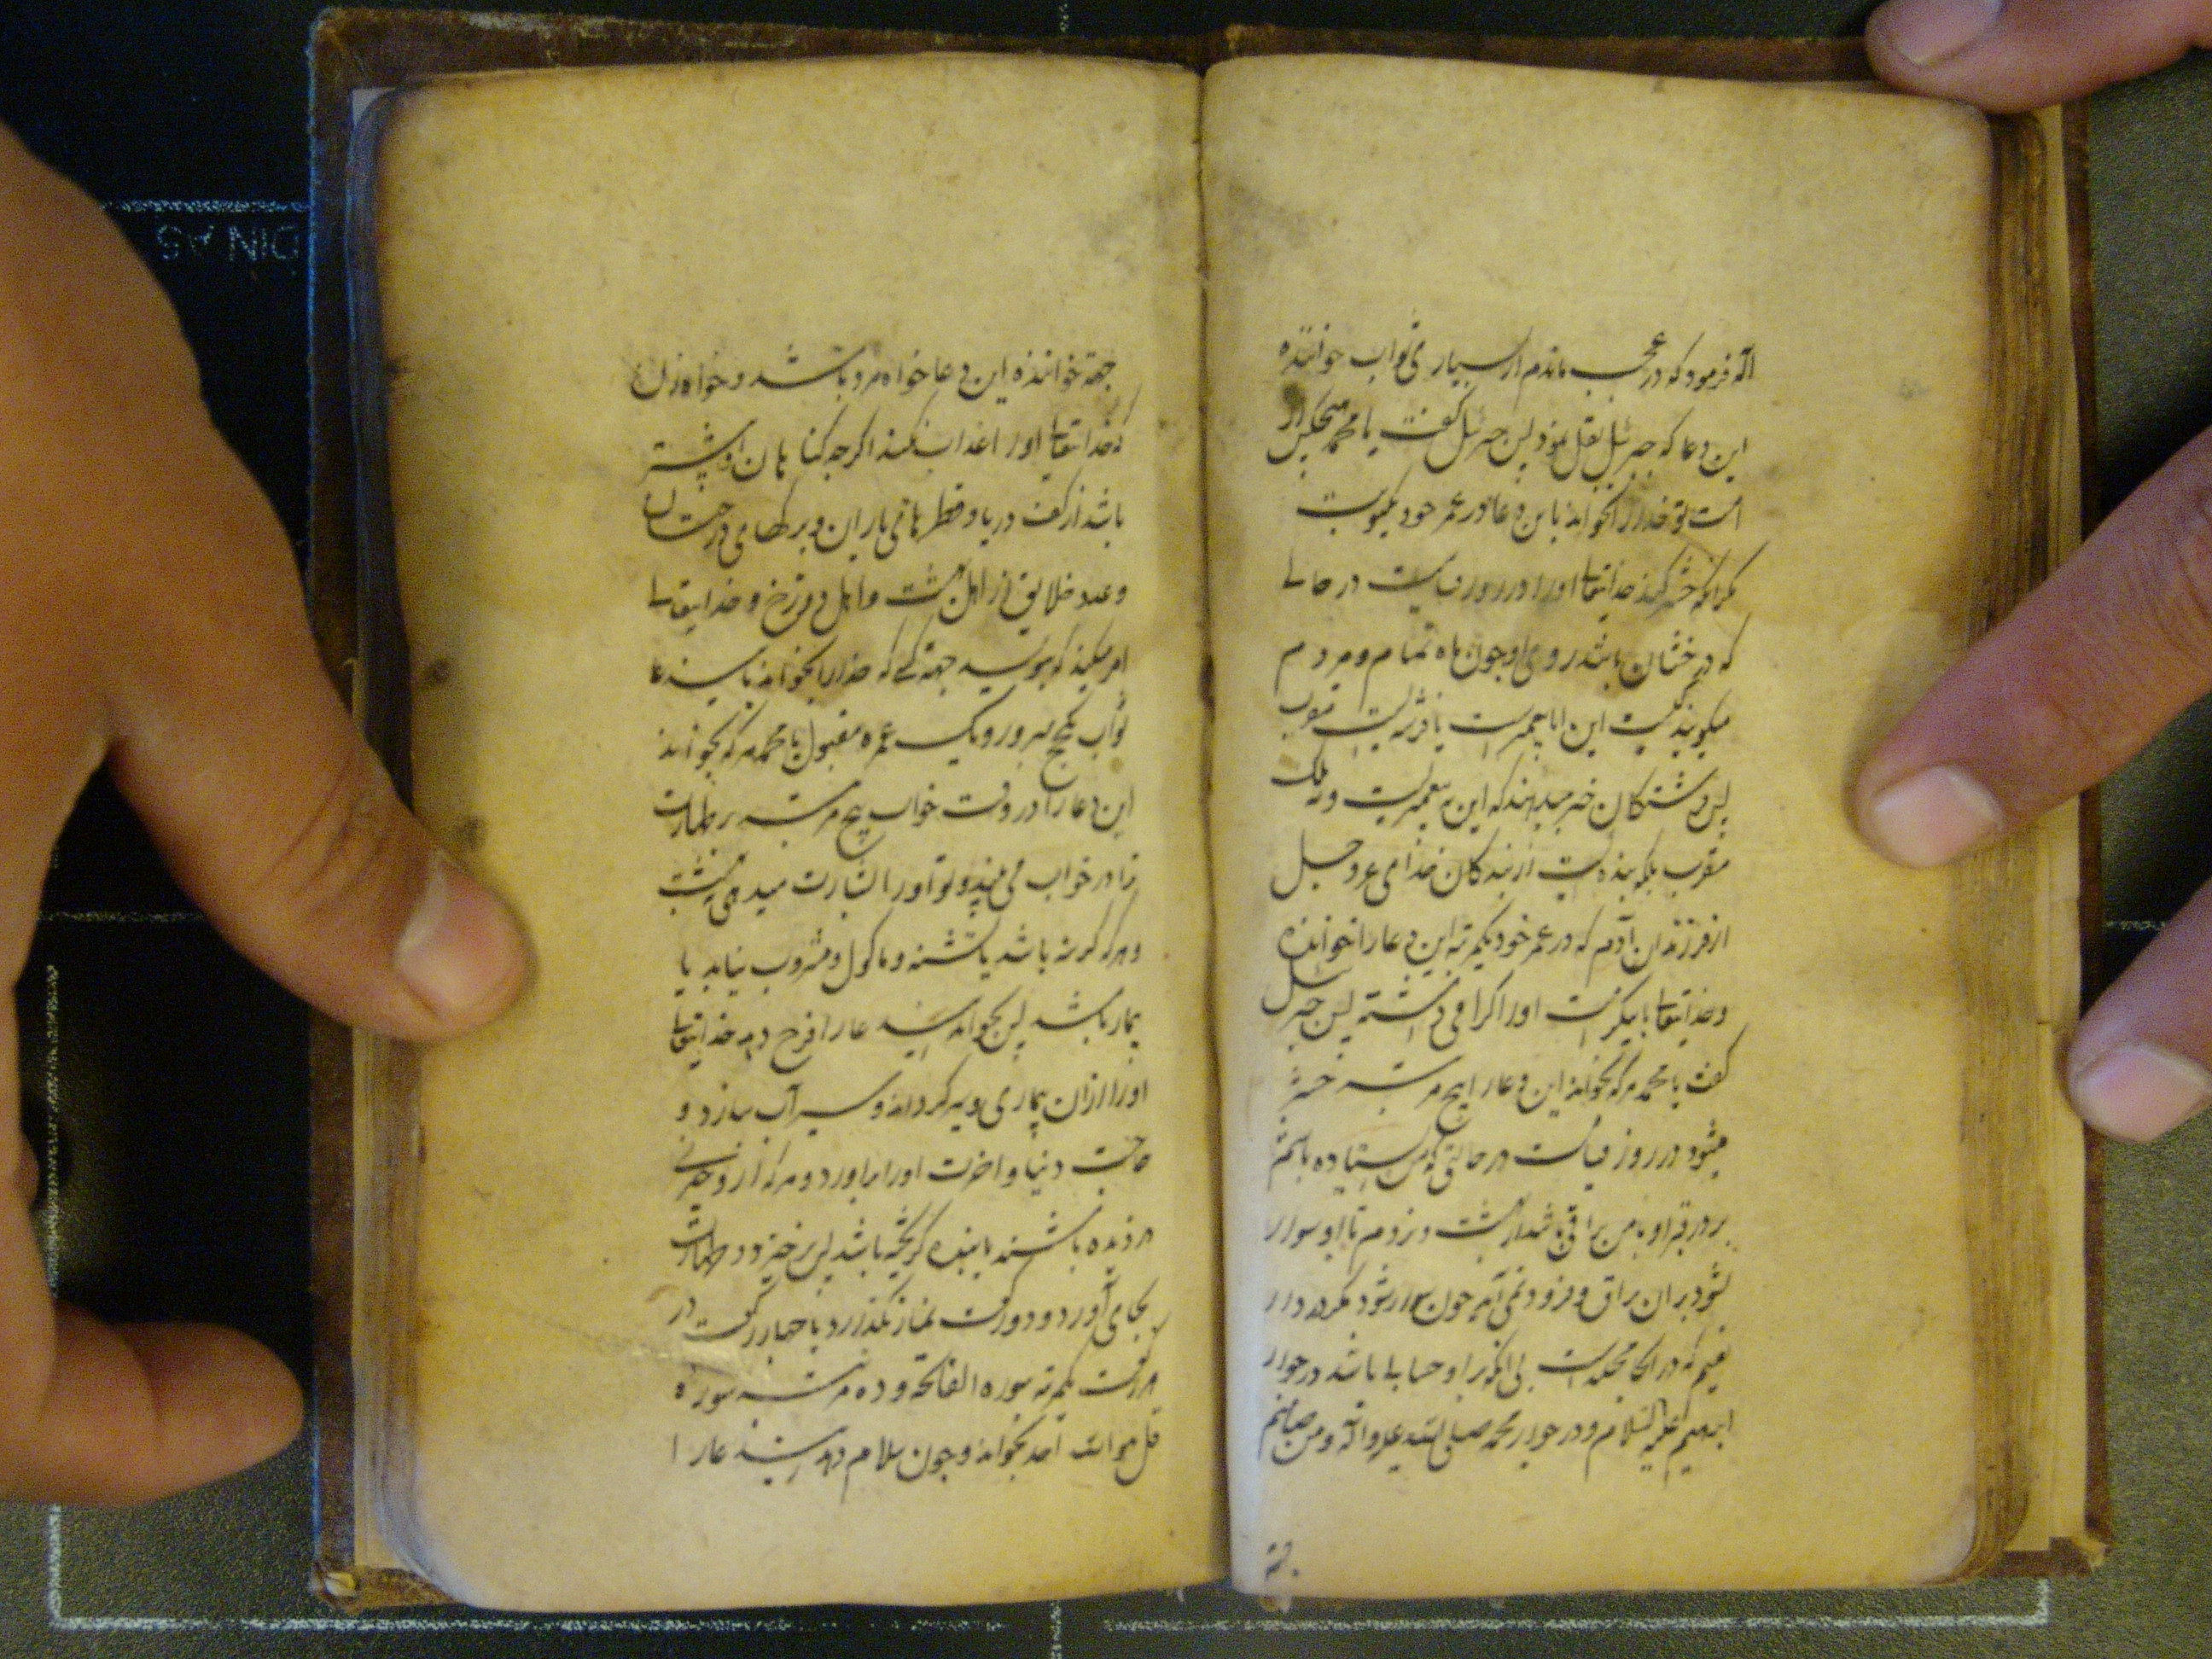 اله فرمود که در عجب ماندم از بسیاری ثواب خواننده
این دعا که جبرئیل نقل نمود پس جبرئیل گفت یا محمد هیچکس از
امت تو خدا را نخواند باین دعا در عمر خود یکنوبت
مگر آنکه حشر کند خدایتعالی او را در روز قیامت در حالی
که درخشان باشد روی او چون ماه تمام و مردم
میگویند کیست این ایا پیغمبرست یا فرشته ایست مقرب
پس فرشتگان خبر میدهند که این نه پیغمبریست و نه ملک
مقرب بلکه بنده ایست از بندکان خدای عز و جل
از فرزندان آدم که در عمر خود یکمرتبه این دعا را خوانده
و خدایتعالی باینکرامت او را گرامی داشته پس جبرئیل
گفت یا محمد هر که بخواند این دعا را پنج مرتبه حشر
میشود در روز قیامت در حالتی که من ایستاده باشم
بر در قبر او با من براقی باشد از بهشت و نروم تا او سوار
شود بران براق و فرود نمی آید چون سوار شود مگر در دار
نعیم که در انجا مخلدست بی انکه بر او حسابی باشد در جوار
ابرهیم علیه السلام و در جوار محمد صلی الله علیه واله و من ضامنم
جهة خواننده این دعا خواه مرد باشد و خواه زن
که خدایتعالی او را عذاب نکند اکرچه کناهان او بیشتر
باشد از کف دریا و قطرهای باران و برکهای درختان
و عدد خلایق از اهل بهشت و اهل دوزخ و خدایتعالی
امر میکند که بنویسید جهة کسی که خدا را بخواند باین دعا
ثواب یکحج مبرور و یک عمره مقبول یا محمد هر که بخواند
این دعا را در وقت خواب پنج مرتبه بر طهارت
ترا در خواب می بیند و تو او را بشارت میدهی ببهشت
و هر که کرسنه باشد یا تشنه و ماکول و مشروب نیابد یا
بیمار باشد پس بخواند این دعا را فرح دهد خدایتعالی
او را از ان بیماری و سیر کرداند و سیرآب سازد و
حاجت دنیا و اخرت او را براورد و هر که از و چیزی
دزدیده باشند یا بنده گریخته باشد پس برخیزد و طهارت
بجای آورد و دو رکعت نماز بکذارد یا چهار رکعت در
هر رکعت یکمرتبه سوره الفاتحه و ده مرتبه سوره
قل هو الله احد بخواند و چون سلام دهد این دعا را